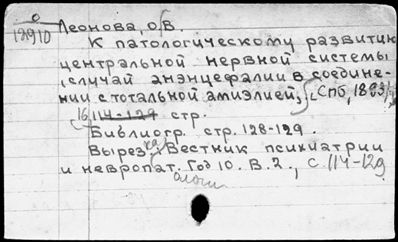 0
12910
Леонова, О.В.
К патологическому развитию
центральной нервной системы
, случай анэнцефалии в соедине-
нии с тотальной амиэлией, [Спб, 1893].
16 114-129 стр.
Библиогр. стр. 128-129.
Вырез. из: Вестник психиатрии
и невропатологии. Год 10. В. 2., с. 114-129